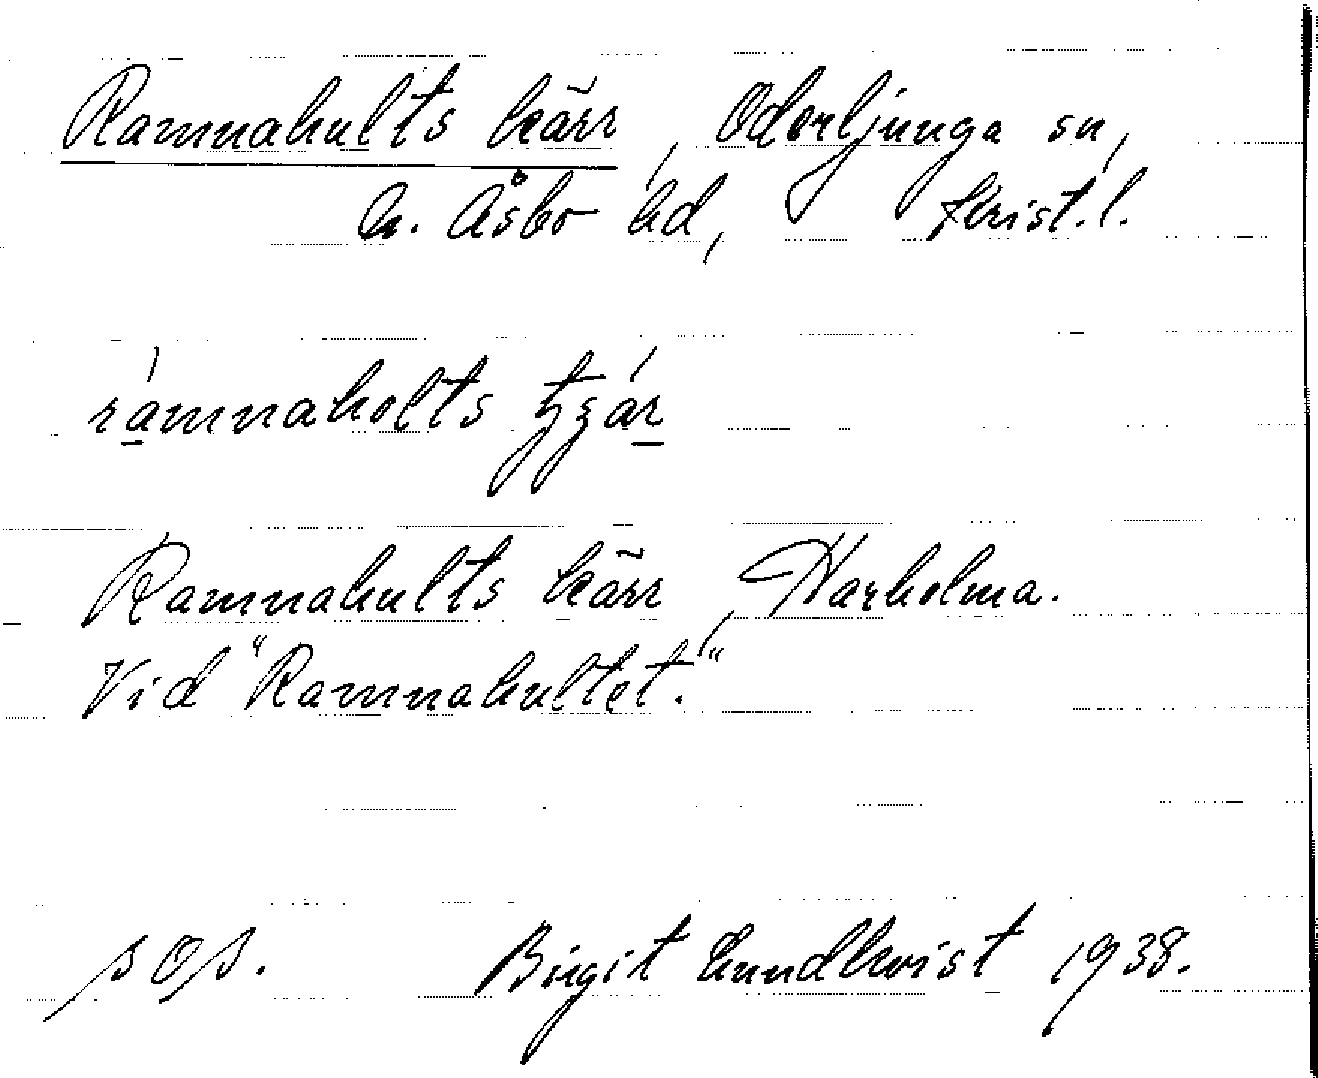 Ramnahults kärr, Oderljunga sn,
N. Åsbo hd, Krist.l.
rámnaholts tʒár
Ramnahults kärr, Harholma.
Vid "Ramnahultet."
Birgit Lundkvist 1938.